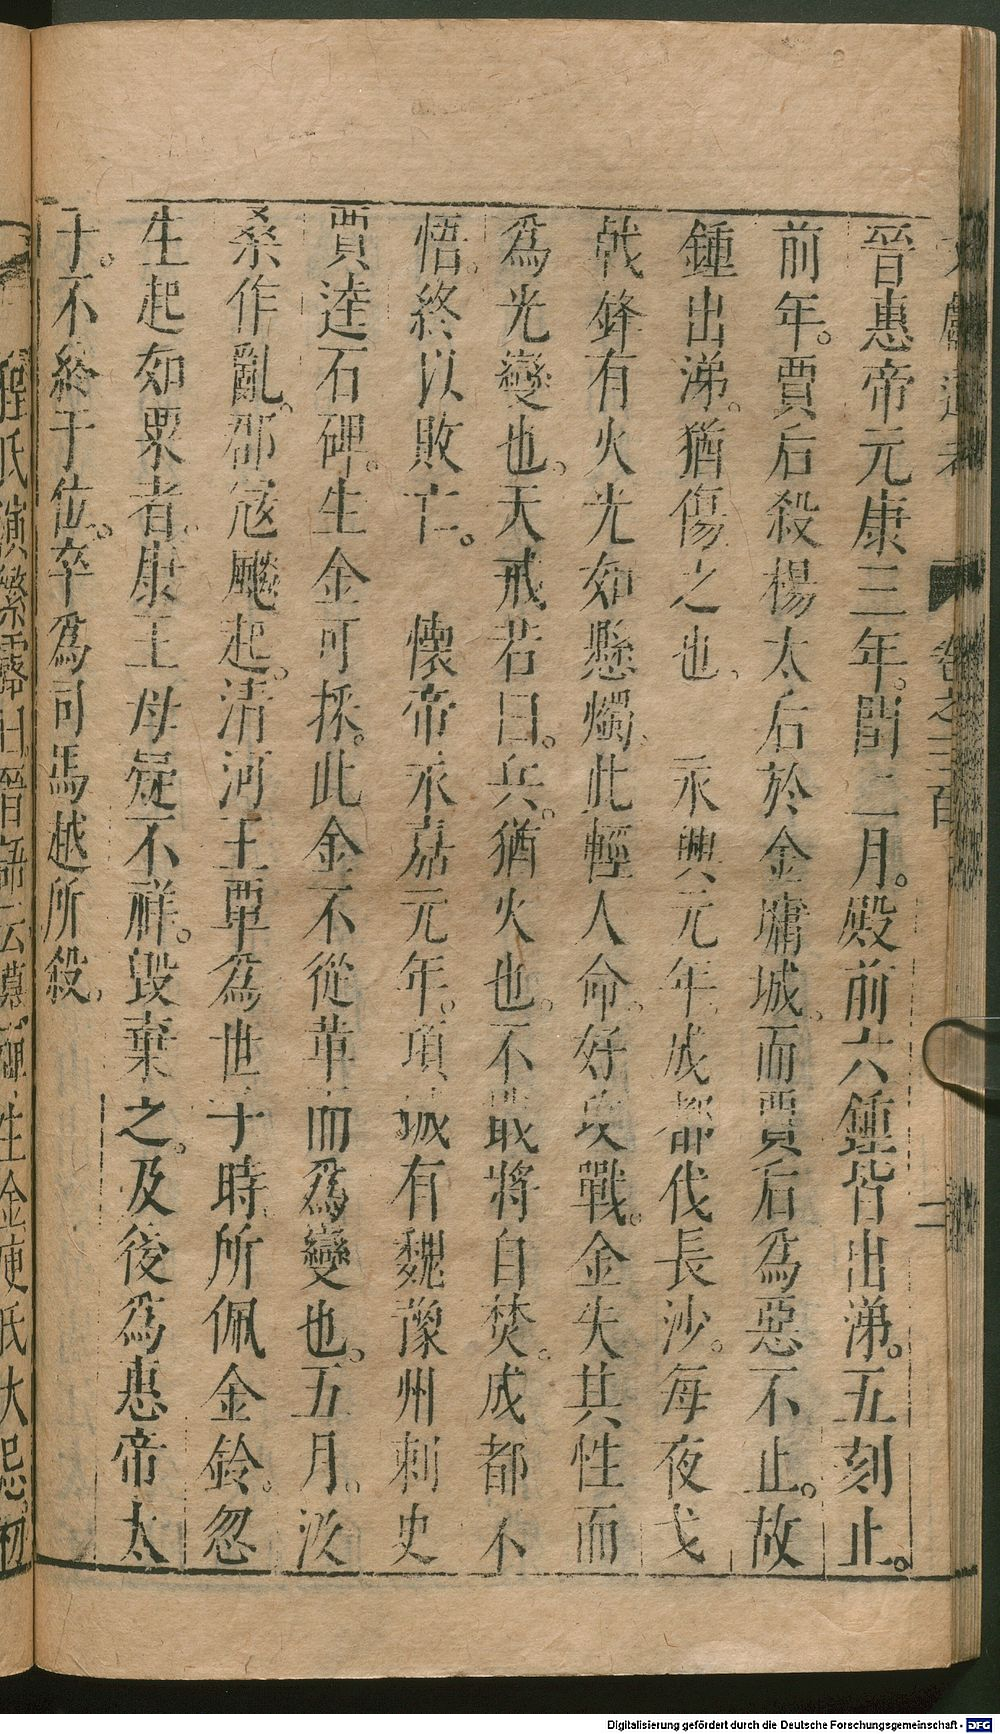 晉惠帝元康三年。閏二月。殿前六鍾皆出涕。五刻止。
前年。賈后殺楊太后於金墉城。而賈后為惡不止。故
鍾出涕。猶傷之也。 永興元年。成都伐長沙。每夜戈
戟鋒有火光如懸燭。此輕人命。好攻戰。金失其性而
為光變也。天戒若曰。兵。猶火也。不戢將自焚。成都不
悟。終以敗亡。 懷帝永嘉元年。項城有魏豫州刺史
賈逵石碑。生金可採。此金不從革而為變也。五月。汲
桑作亂。群寇飈起。清河王覃為世子時。所佩金鈴。忽
生起如粟者。康王母疑不祥。毀棄之。及後為惠帝太
子。不終于位。卒為司馬越所殺。
程氏演繁露曰晉語云 生金庾氏大忌初
卷之三百
二
Digitalisierung gefördert durch die Deutsche Forschungsgemeinschaft - DFG